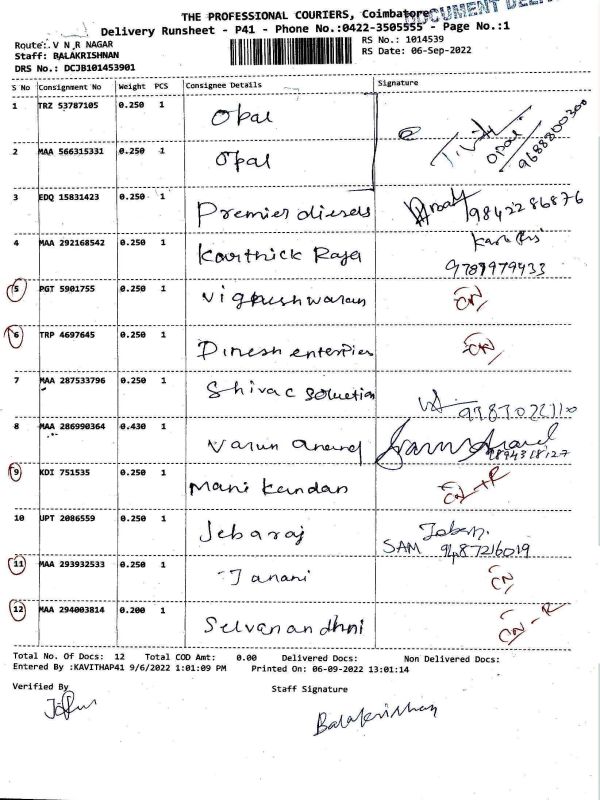 THE PROFESSIONAL COURIERS, Coimbatore
DOCUMENT
Delivery Runsheet - P41 - Phone No.:0422-3505555 - Page No.:1
Route: V N R NAGAR
RS No.: 1014539
Staff: BALAKRISHNAN
RS Date: 06-Sep-2022
DRS No.: DCJB101453901
S No Consignment No Weight PCS Consignee Details Signature
1 TRZ 53787105 0.250 1 Opal
Opal 9688800300
2 MAA 566315331 0.250 1 Opal
3 EDQ 15831423 0.250 1 Premier diesels 9842286876
4 MAA 292168542 0.250 1 Karthick Raja
9789979433
5 PGT 5901755 0.250 1 Vigneshwaran CN
6 TRP 4697645 0.250 1 Dinesh enterpies CN
7 MAA 287533796 0.250 1 Shivac solution
8 MAA 286990364 0.430 1 Varun anand
9894318127
9 KDI 751535 0.250 1 Mani kandan CN + R
10 UPT 2086559 0.250 1 Jebaraj
SAM 9487216019
11 MAA 293932533 0.250 1 Janani CN
12 MAA 294003814 0.200 1 Selvanandhni CN - R
Total No. Of Docs: 12 Total COD Amt: 0.00 Delivered Docs: Non Delivered Docs:
Entered By :KAVITHAP41 9/6/2022 1:01:09 PM Printed On: 06-09-2022 13:01:14
Verified By
Staff Signature
Balakrishnan